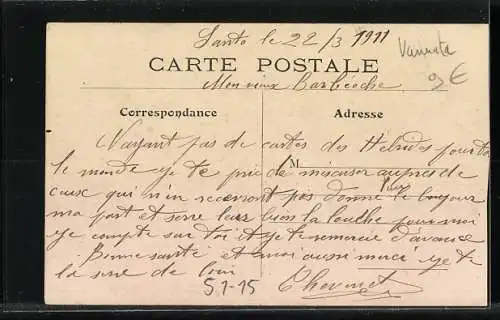 Santo le 22/3 1911
Vanuata
9€
CARTE POSTALE
Mon vieux Barbéoche
Correspondance
Adresse
N'ayant pas de cartes des Hébrides pour tou
M
le monde je te prie de m'iscuser auprès de
ceux qui n'en recevront pas donne le bonjour
ma part et serre leur bien la louche pour moi
je compte sur toi et je te remercie d'avance
Bonne santé et moi aussi merci je te
la serre de loin
51-15
Thevenet